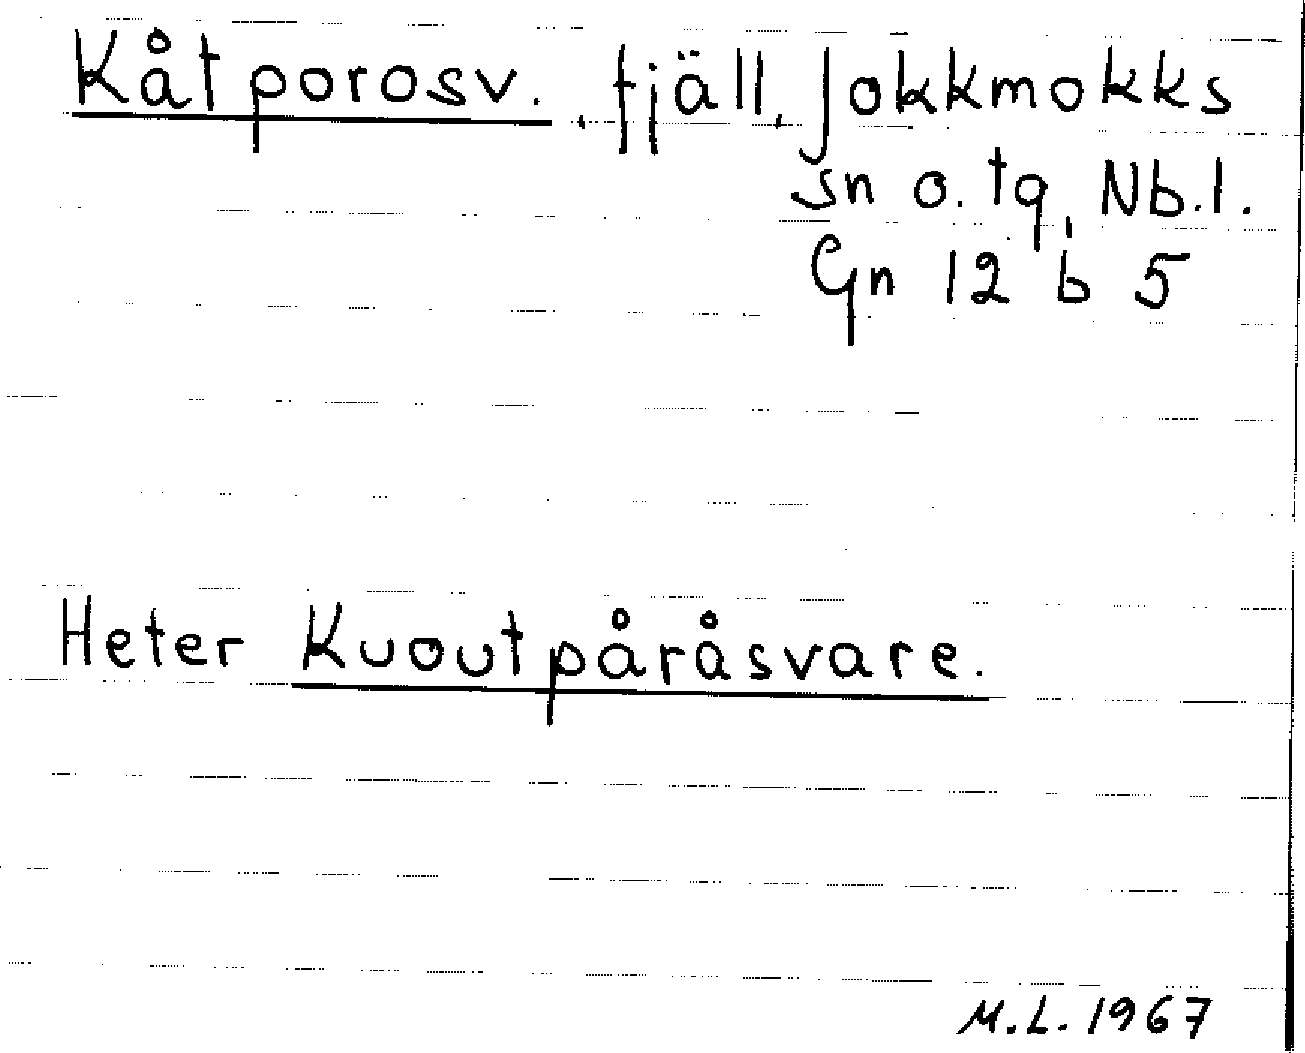 Kåtporosv., fjäll, Jokkmokks
sn o. tg, Nb.l.
Gn 12 b 5
Heter Kuoutpåråsvare.
M.L. 1967